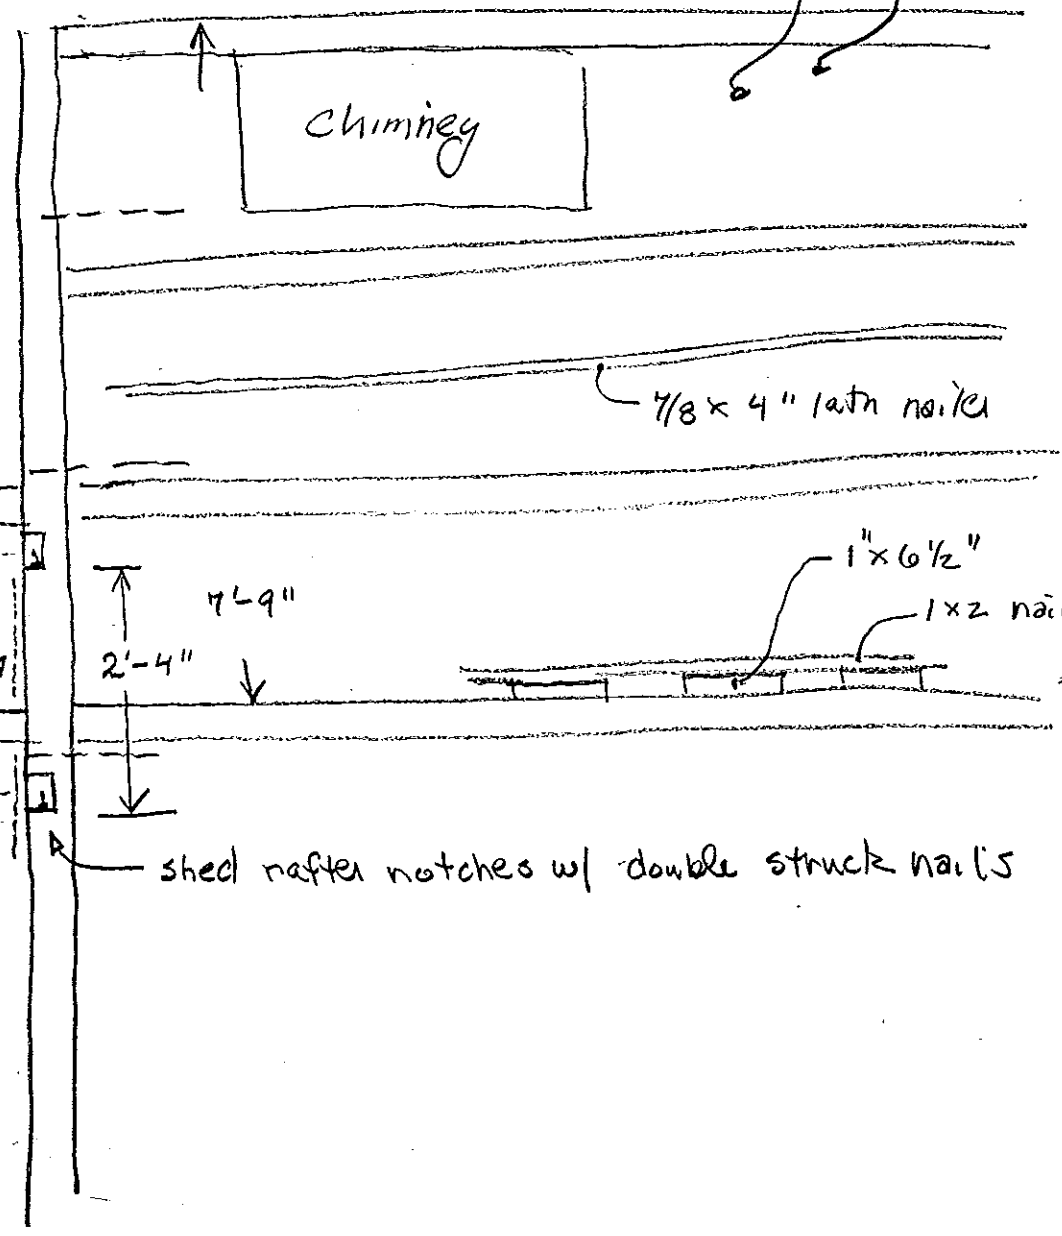 Chimney
7/8 x 4" lath nailer
1" x 6 1/2"
7'-9"
1 x 2 nai
2'-4"
shed rafter notches w/ double struck nails